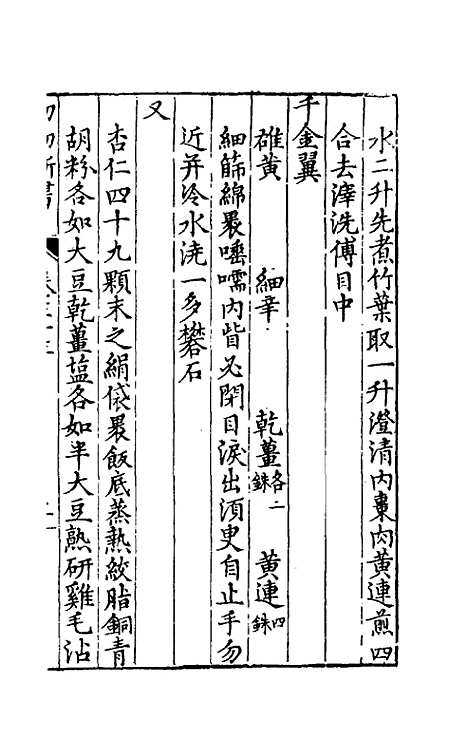 水二升先煮竹葉取一升澄清內棗肉黃連煎四
合去滓洗傅目中
千金翼
雄黃　細辛　乾薑各二銖　黃連四銖
細篩綿裹唾嚅內眥必閉目淚出須臾自止手勿
近并冷水洗一多礬石
又
杏仁四十九顆末之絹袋裹飯底蒸熱絞脂銅青
胡粉各如大豆乾薑塩各如半大豆熟研雞毛沾
幼幼新書
卷三十三